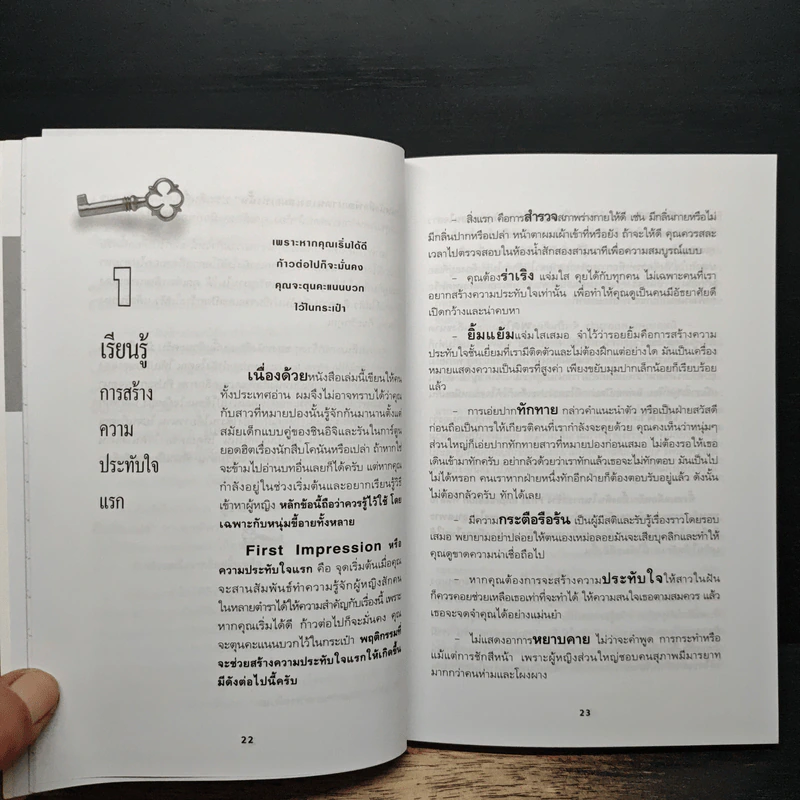 เพราะหากคุณเริ่มได้ดี
ก้าวต่อไปก็จะมั่นคง
คุณจะตุนคะแนนบวก
ไว้ในกระเป๋า
1
เรียนรู้
การสร้าง
ความ
ประทับใจ
แรก
เนื่องด้วยหนังสือเล่มนี้เขียนให้คน
ทั้งประเทศอ่าน ผมจึงไม่อาจทราบได้ว่าคุณ
กับสาวที่หมายปองนั้นรู้จักกันมานานตั้งแต่
สมัยเด็กแบบคู่ของชินอิจิและรันในการ์ตูน
ยอดฮิตเรื่องนักสืบโคนันหรือเปล่า ถ้าหากใช่
จะข้ามไปอ่านบทอื่นเลยก็ได้ครับ แต่หากคุณ
กำลังอยู่ในช่วงเริ่มต้นและอยากเรียนรู้วิธี
เข้าหาผู้หญิง หลักข้อนี้ถือว่าควรรู้ไว้ใช้ โดย
เฉพาะกับหนุ่มขี้อายทั้งหลาย
First Impression หรือ
ความประทับใจแรก คือ จุดเริ่มต้นเมื่อคุณ
จะสานสัมพันธ์ทำความรู้จักผู้หญิงสักคน
ในหลายตำราได้ให้ความสำคัญกับเรื่องนี้ เพราะ
หากคุณเริ่มได้ดี ก้าวต่อไปก็จะมั่นคง คุณ
จะตุนคะแนนบวกไว้ในกระเป๋า พฤติกรรมที่
จะช่วยสร้างความประทับใจแรกให้เกิดขึ้น
มีดังต่อไปนี้ครับ
22
– สิ่งแรก คือการสำรวจสภาพร่างกายให้ดี เช่น มีกลิ่นกายหรือไม่
มีกลิ่นปากหรือเปล่า หน้าตาผมเผ้าเข้าที่หรือยัง ถ้าจะให้ดี คุณควรสละ
เวลาไปตรวจสอบในห้องน้ำสักสองสามนาทีเพื่อความสมบูรณ์แบบ
– คุณต้องร่าเริง แจ่มใส คุยได้กับทุกคน ไม่เฉพาะคนที่เรา
อยากสร้างความประทับใจเท่านั้น เพื่อทำให้คุณดูเป็นคนมีอัธยาศัยดี
เปิดกว้างและน่าคบหา
– ยิ้มแย้มแจ่มใสเสมอ จำไว้ว่ารอยยิ้มคือการสร้างความ
ประทับใจชั้นเยี่ยมที่เรามีติดตัวและไม่ต้องฝึกแต่อย่างใด มันเป็นเครื่อง
หมายแสดงความเป็นมิตรที่สูงค่า เพียงขยับมุมปากเล็กน้อยก็เรียบร้อย
แล้ว
– การเอ่ยปากทักทาย กล่าวคำแนะนำตัว หรือเป็นฝ่ายสวัสดี
ก่อนถือเป็นการให้เกียรติคนที่เรากำลังจะคุยด้วย คุณคงเห็นว่าหนุ่มๆ
ส่วนใหญ่ก็เอ่ยปากทักทายสาวที่หมายปองก่อนเสมอ ไม่ต้องรอให้เธอ
เดินเข้ามาทักครับ อย่ากลัวด้วยว่าเราทักแล้วเธอจะไม่ทักตอบ มันเป็นไป
ไม่ได้หรอก คนเราหากฝ่ายหนึ่งทักอีกฝ่ายก็ต้องตอบรับอยู่แล้ว ดังนั้น
ไม่ต้องกลัวครับ ทักได้เลย
– มีความกระตือรือร้น เป็นผู้มีสติและรับรู้เรื่องราวโดยรอบ
เสมอ พยายามอย่าปล่อยให้ตนเองเหม่อลอยมันจะเสียบุคลิกและทำให้
คุณดูขาดความน่าเชื่อถือไป
– หากคุณต้องการจะสร้างความประทับใจให้สาวในฝัน
ก็ควรคอยช่วยเหลือเธอเท่าที่จะทำได้ ให้ความสนใจเธอตามสมควร แล้ว
เธอจะจดจำคุณได้อย่างแม่นยำ
– ไม่แสดงอาการหยาบคาย ไม่ว่าจะคำพูด การกระทำหรือ
แม้แต่การชักสีหน้า เพราะผู้หญิงส่วนใหญ่ชอบคนสุภาพมีมารยาท
มากกว่าคนห่ามและโผงผาง
23